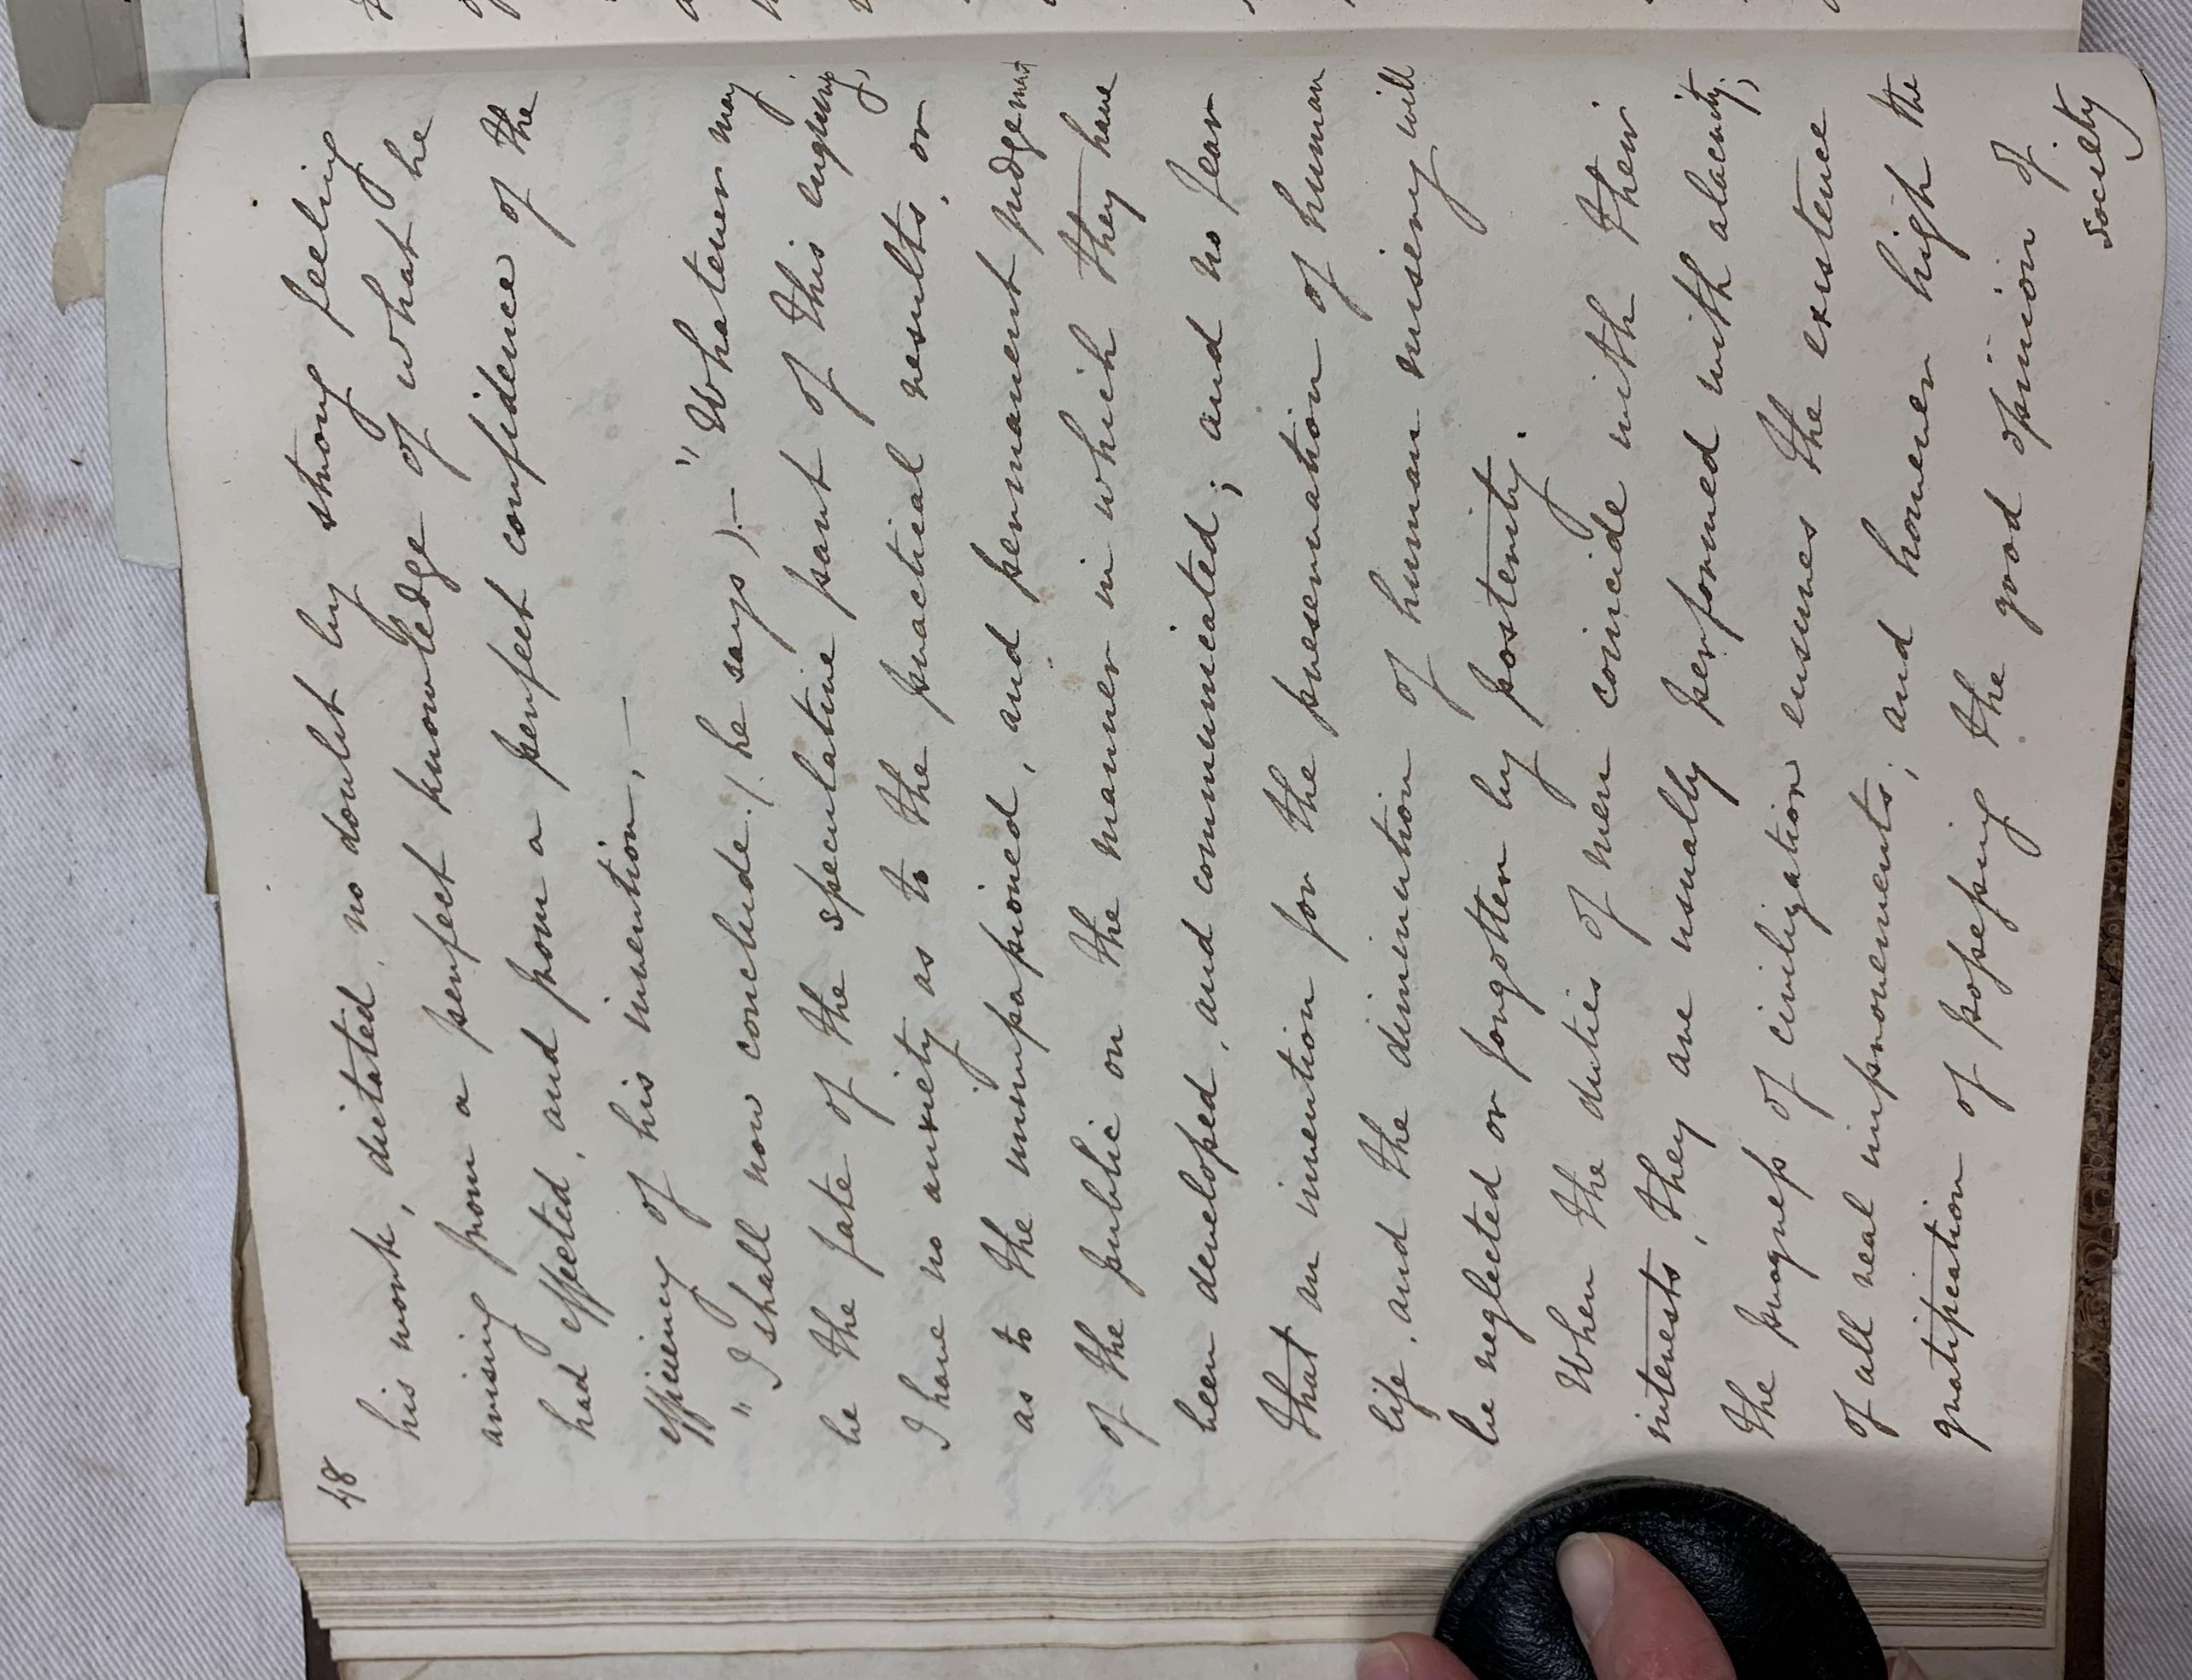 48
his work, dictated, no doubt by strong feeling
arising from a perfect knowledge of what he
had effected, and from a perfect confidence of the
efficiency of his invention. —
"I shall now conclude! (he says) — "Whatever may
be the fate of the speculative part of this enquiry,
I have no anxiety as to the practical results, or
as to the unimpassioned, and permanent judgement
of the public on the manner in which they have
been developed, and communicated; and no fear
that an invention for the preservation of human
life, and the diminution of human misery will
be neglected or forgotten by posterity.
When the duties of men coincide with their
interests, they are usually performed with alacrity;
the progress of civilization ensures the existence
of all real improvements; and however high the
gratification of possessing the good opinion of
society